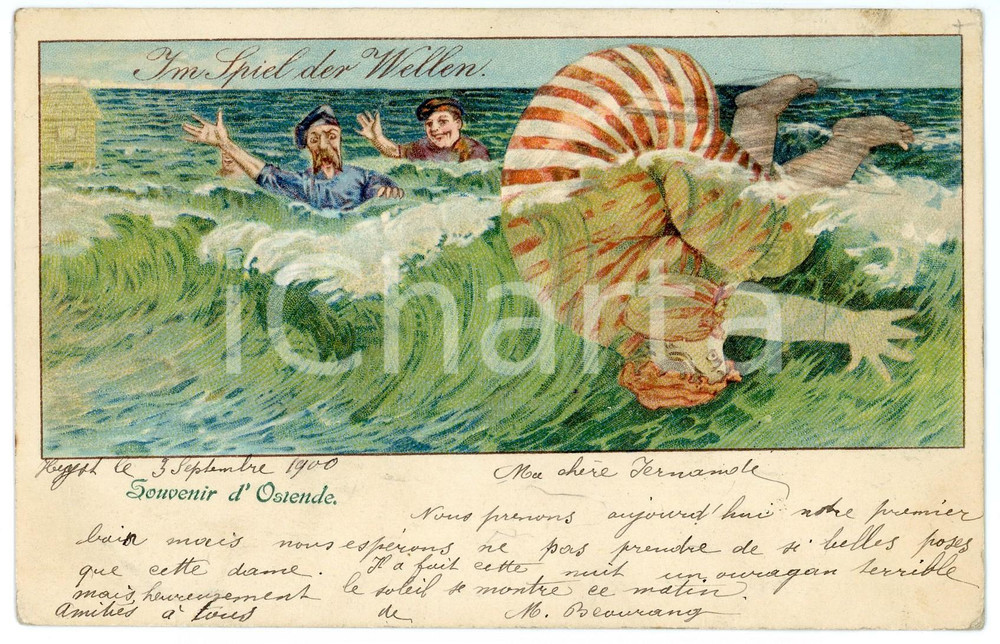 Im Spiel der Wellen.
iCharta
Heyst le 3 Septembre 1900
Ma chère Fernande
Souvenir d'Ostende.
Nous prenons aujourd'hui notre premier
bain mais nous espérons ne pas prendre de si belles poses
que cette dame. Il a fait cette nuit un ouragan terrible
mais heureusement le soleil se montre ce matin.
Amitiés à tous de M.